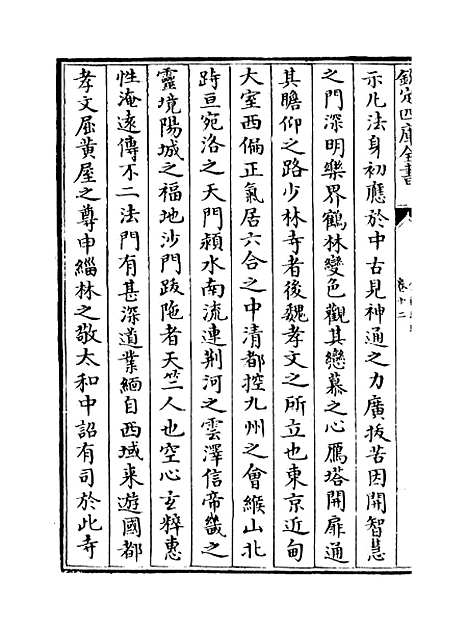 欽定四庫全書
卷十二
示凡法身初應於中古見神通之力廣拔苦因開智慧
之門深明樂界鶴林變色觀其戀慕之心鴈塔開扉通
其瞻仰之路少林寺者後魏孝文之所立也東京近甸
大室西偏正氣居六合之中清都控九州之會緱山北
峙亘宛洛之天門潁水南流連荆河之雲澤信帝畿之
靈境陽城之福地沙門跋陁者天竺人也空心玄粹惠
性淹遠傳不二法門有甚深道業緬自西域来遊國都
孝文屈黄屋之尊申緇林之敬太和中詔有司於此寺